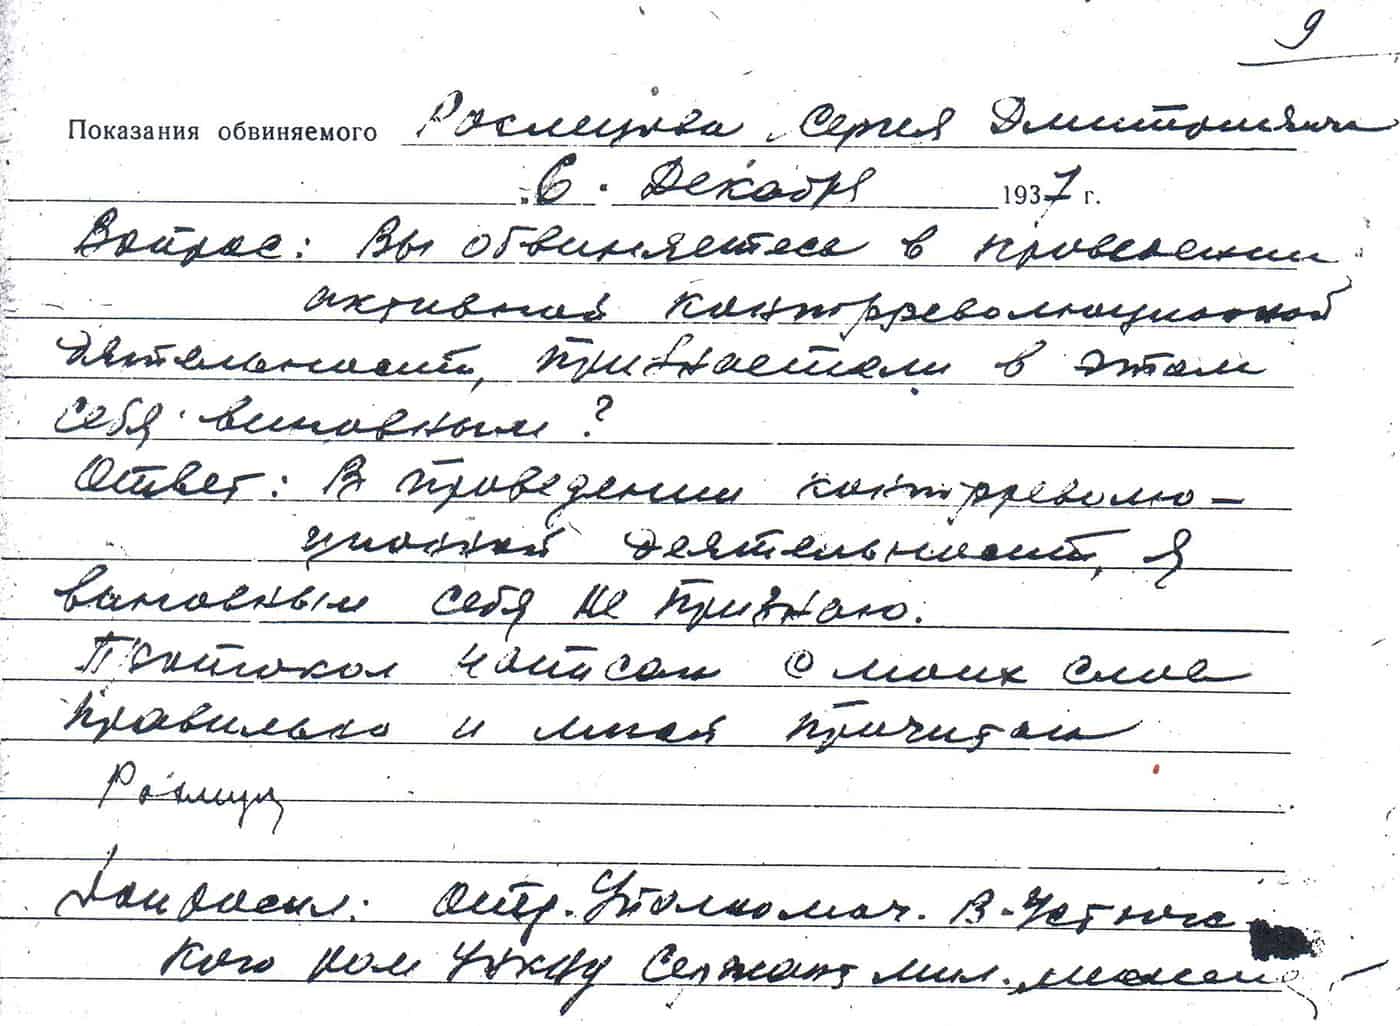 9
Показания обвиняемого Рослецова Сергея Дмитриевича
„6“ Декабря 1937 г.
Вопрос: Вы обвиняетесь в проведении
активной контрреволюционной
деятельности, признаете ли в этом
себя виновным?
Ответ: В проведении контрреволю-
ционной деятельности, я
виновным себя не признаю.
Протокол написан с моих слов
правильно и мной прочитан
Допросил: Опер. Уполномоч. В-Устюгс
кого РОМ УНКВД Сержант мил.